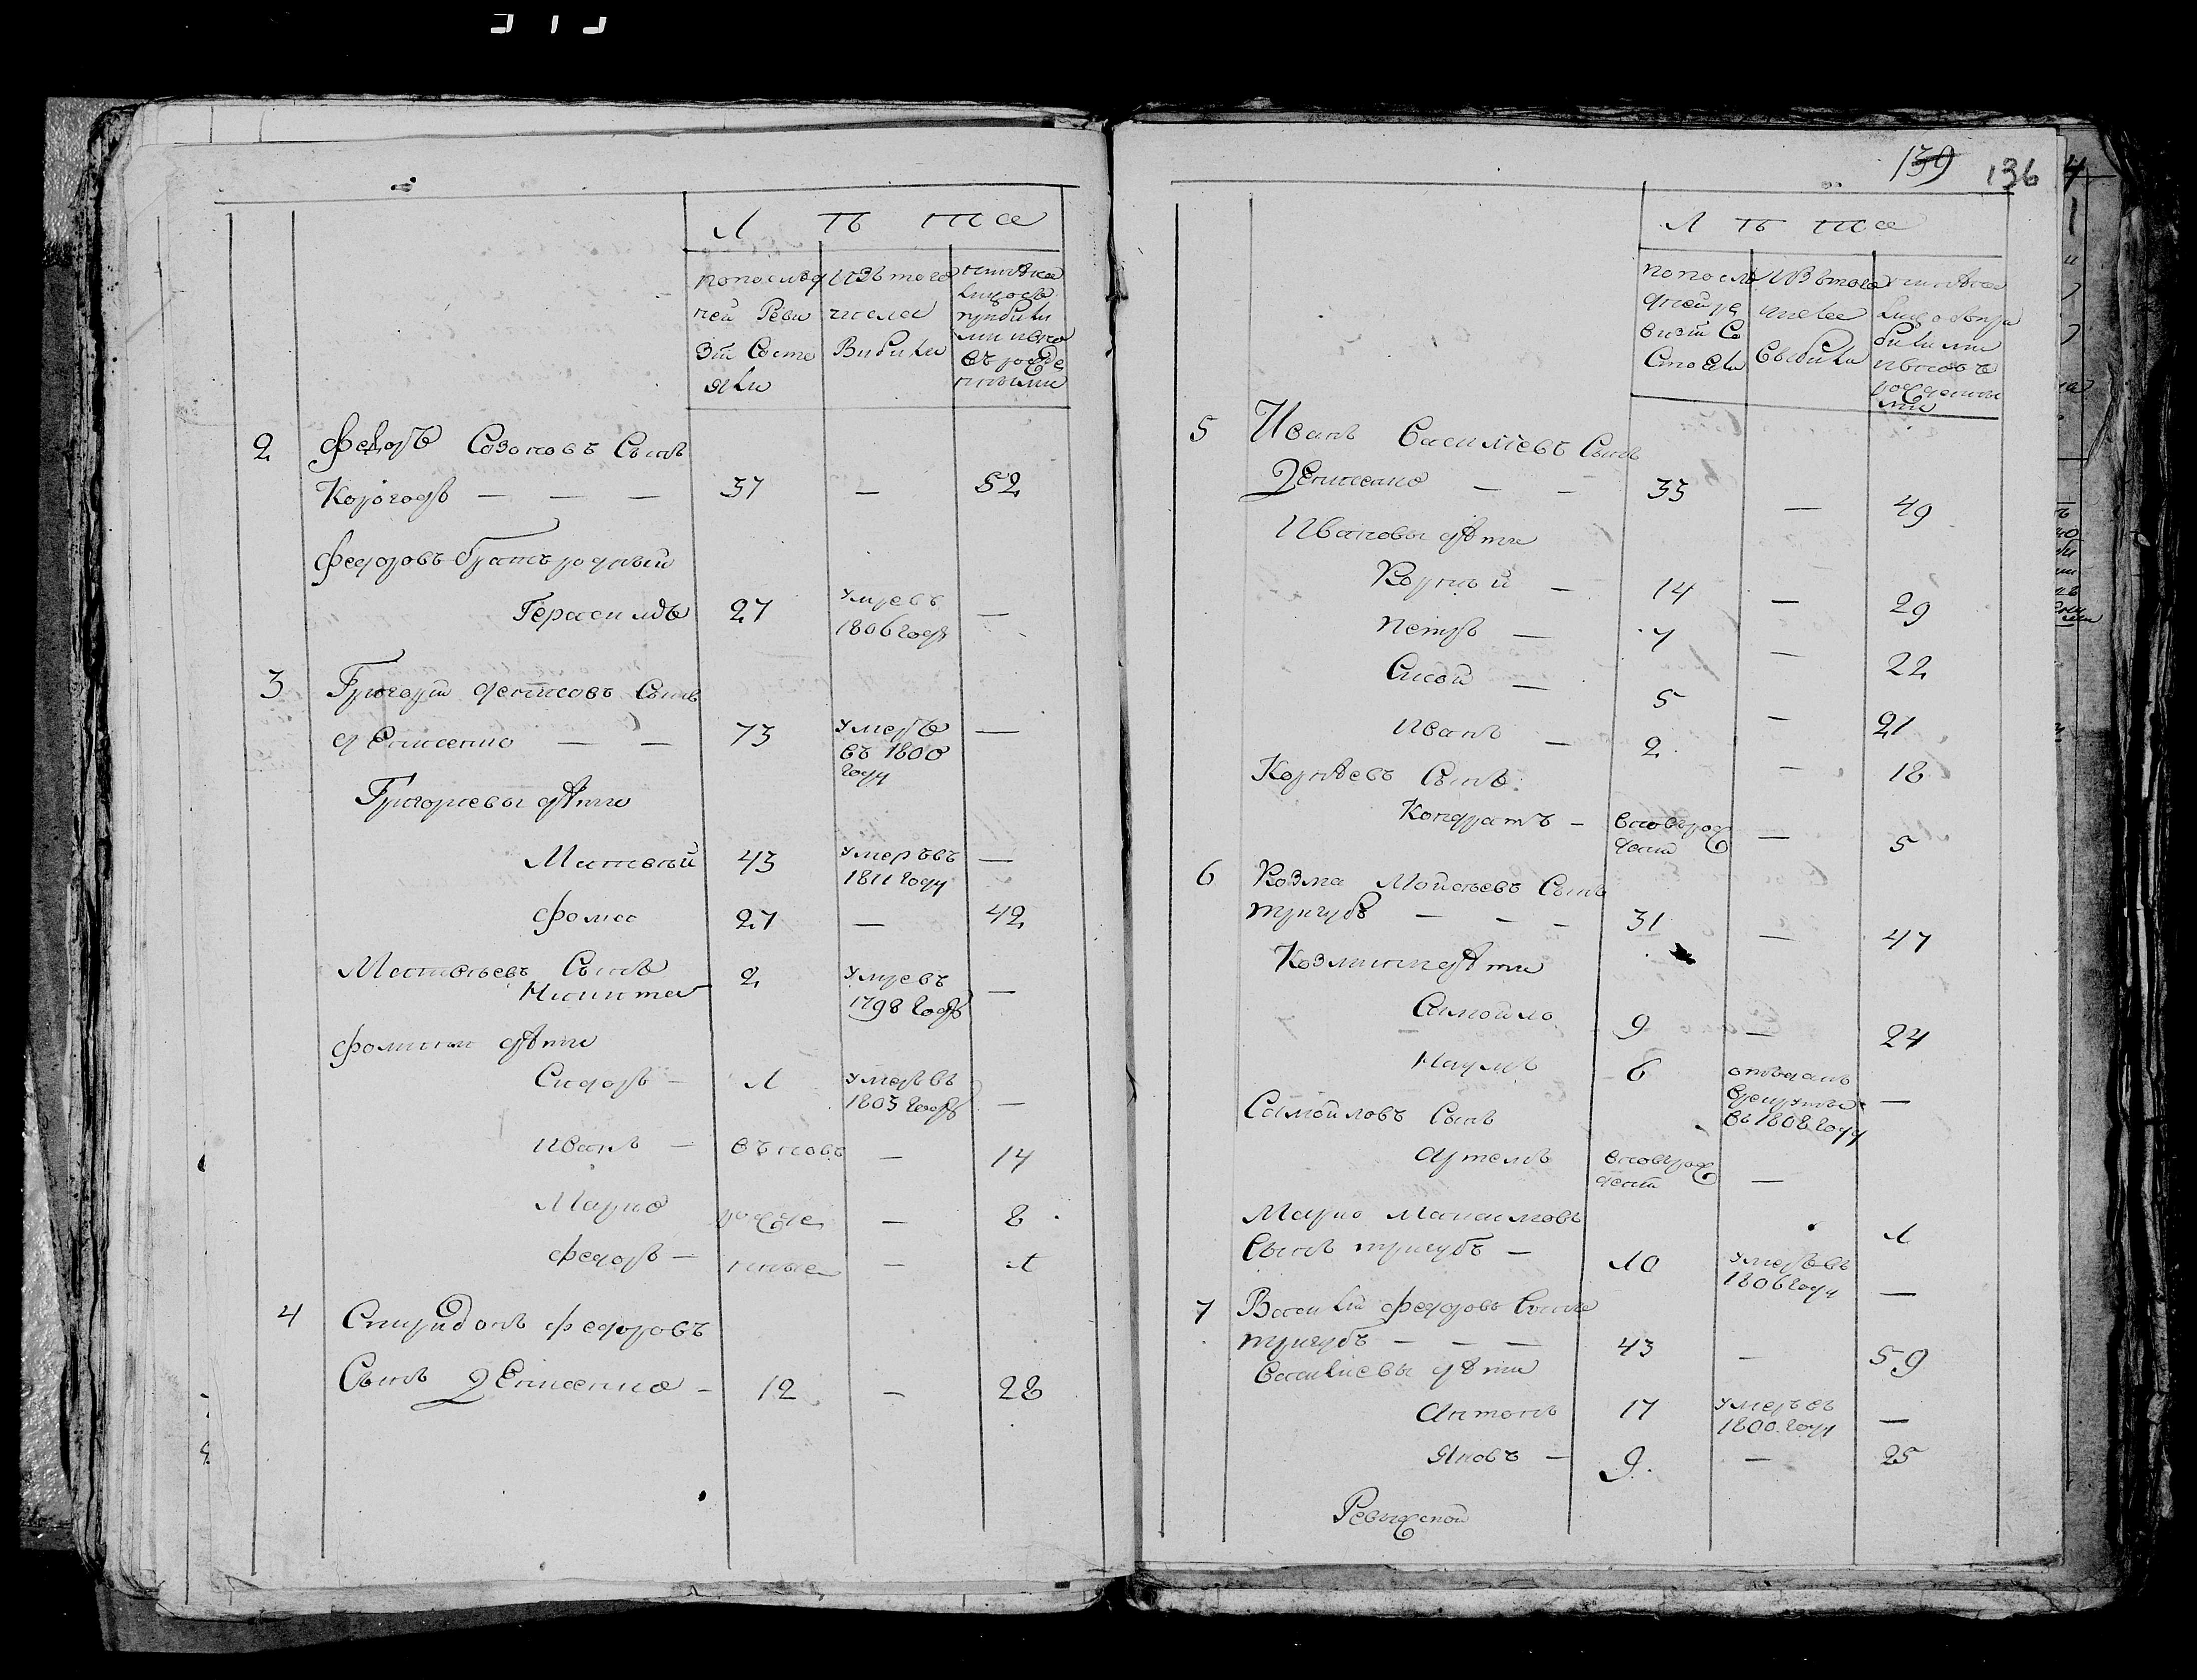 Л ѣ та
попослѣд
ней Реви
зіи Состо
яли
Изъ того
числа
Выбыли
2 Федоръ Созоновъ Сынъ
Корогодъ — — — 37 — 52
Федоровъ братъ родный
Герасимъ 27 умре въ —
1806 годѣ
3 Григорій Денисовъ Сынъ
Денисенко — — 73 умеръ —
въ 1800
году
Григорьевы дѣти
Матвѣй 43 умеръ въ —
1811 году
Фома 27 — 42
Матвѣевъ Сынъ
Никита 2 умре въ —
1798 годѣ
Фомины дѣти
Сидоръ — 1 умеръ въ
1803 годѣ —
Иванъ — въ новъ — 14
Марко рожде — 8
Федоръ — нные — 1
4 Спиридонъ Федоровъ
Сынъ Денисенко — 12 — 28
139 136
Л ѣ та
попослѣ
дней ре
визіи Со
Стояли
Изъ того
числа
выбыли
5 Иванъ Васильевъ Сынъ
Денисенко — — 33 — 49
Ивановы дѣти
Корнѣй — 14 — 29
Петръ — 7 — 22
Сисой — 5 — 21
Иванъ — 2 — 18
Корнѣевъ Сынъ
Кондратъ — вновьрож — 5
денъ
6 Козма Мойсѣевъ Сынъ
тригубъ — — — 31 — 47
Козмины дѣти
Самойло 9 — 24
Наумъ 6 отъданъ
врекруты —
въ 1808 году
Самойловъ Сынъ
Артемъ вновьрож —
денъ 1
Марко Максимовъ
Сынъ тригубъ — 10 умеръ въ
1806 году —
7 Василій Федоровъ Сынъ
тригубъ — — — 43 — 59
Василіевы дѣти
Антонъ 17 умеръ въ —
1800 году
Яковъ — 9 — 25